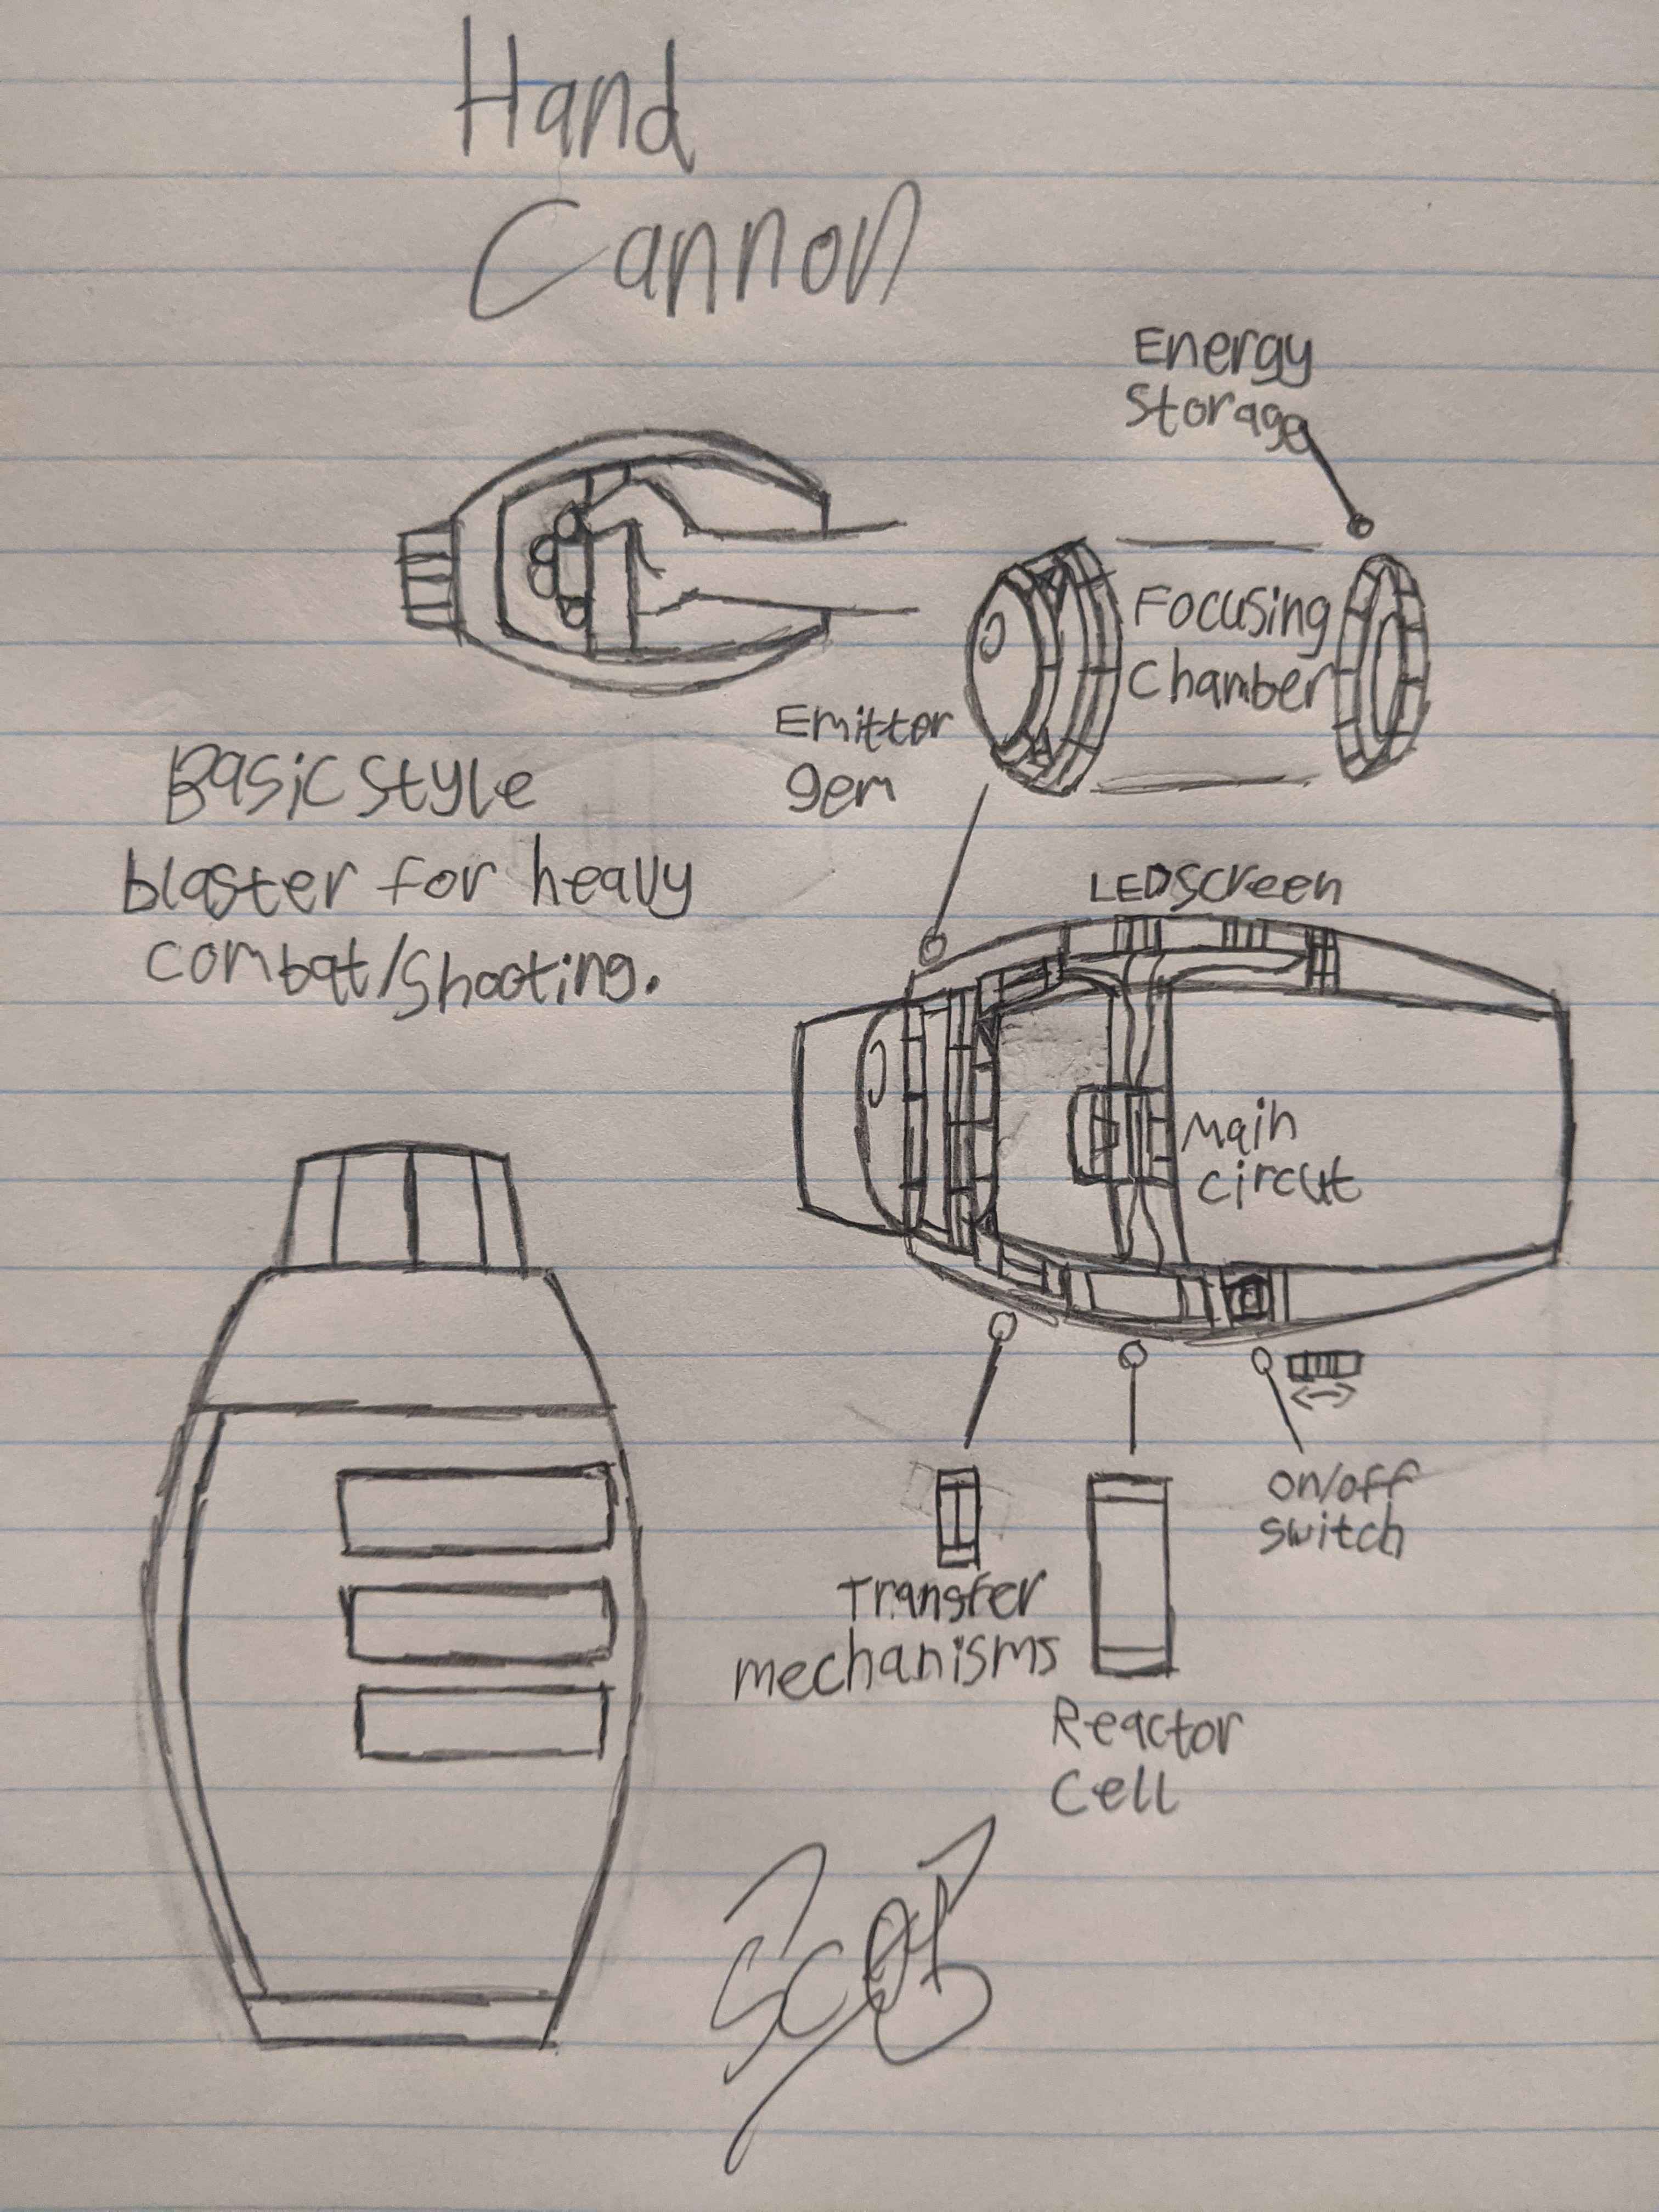 Hand
Cannon
Energy
Storage
Focusing
Chamber
Emitter
gem
Basic style
blaster for heavy
combat/shooting.
LED screen
Main
circut
on/off
switch
Transfer
mechanisms
Reactor
Cell